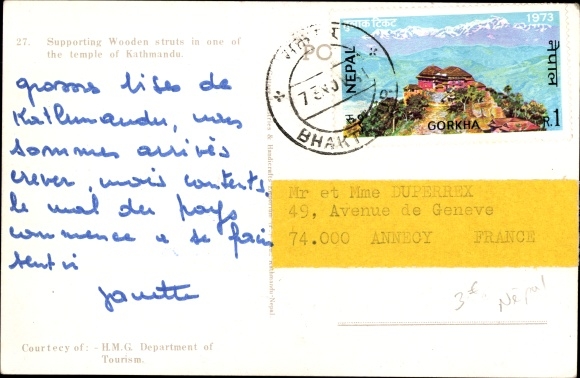 27. Supporting Wooden struts in one of
the temple of Kathmandu.
grosses bises de
Kathmandu, nous
sommes arrivés
crever, mais contents,
le mal du pays
commence a se faire
sentir
Courtesy of: - H.M.G. Department of
Tourism.
पुलक टिकट
1973
NEPAL
नेपाल
GORKHA
R.1
Mr et Mme DUPERREX
49, Avenue de Geneve
74.000 ANNECY FRANCE
3f Népal